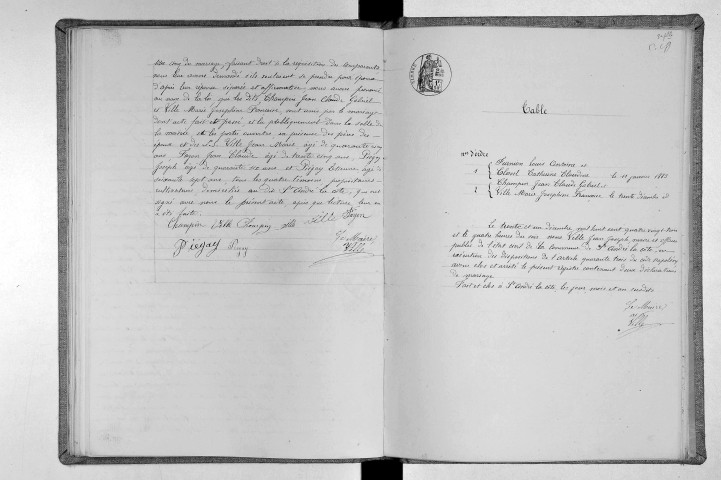 de mariage, faisant droit à la réquisition des comparants
nous leur avons demandé s'ils veulent se prendre pour époux
d'après leur réponse affirmative, nous avons prononcé
au nom de la loi que les dits Champier Jean Claude Gabriel
et Ville Marie Joséphine Francine, sont unis par le mariage
dont acte fait et passé et lu publiquement dans la salle de
la mairie et les portes ouvertes en présence des pères des
époux et des Ville Jean Marie, âgé de quarante cinq
ans, Jean Claude, âgé de trente cinq ans,
Joseph âgé de quarante ans et Etienne, âgé de
soixante sept ans, tous les quatre témoins propriétaires
cultivateurs domiciliés au dit St André la côte, qui ont
signé avec nous le présent acte, après que lecture leur en
a été faite.
Champier Ville Ville
Le Maire
Piégay Ville
Table
Nos d'ordre
1 Louis Antoine et
Catherine Claudine le 11 janvier 1883
2 Champier Jean Claude Gabriel et
Ville Marie Joséphine Francine le trente décembre
Le trente et un décembre mil huit cent quatre vingt trois
et le quatre heures du soir nous Ville Jean Joseph maire et officier
public de l'état civil de la commune de St André la côte, en
exécution des dispositions de l'article quarante trois du code napoléon
avons clos et arrêté le présent registre contenant deux déclarations
de mariage
Fait et clos à St André la côte les jour mois et an susdits
Le Maire
Ville